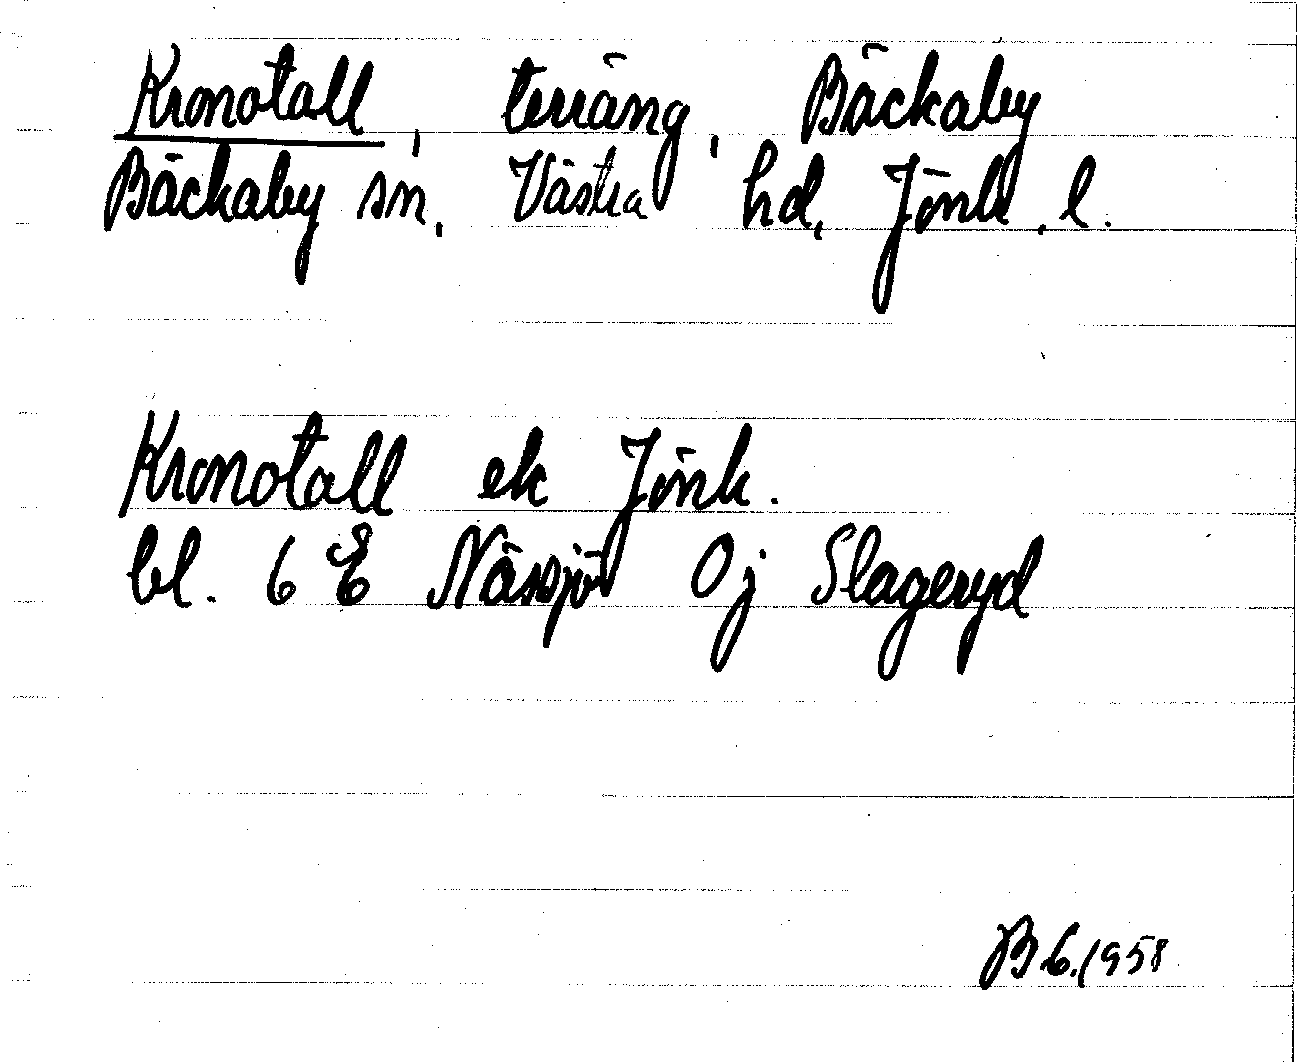 Kronotall, terräng, Bäckaby
Bäckaby sn, Västra hd, Jönk. l.
Kronotall ek Jönk.
bl. 6 E Nässjö 0j Slageryd
1958